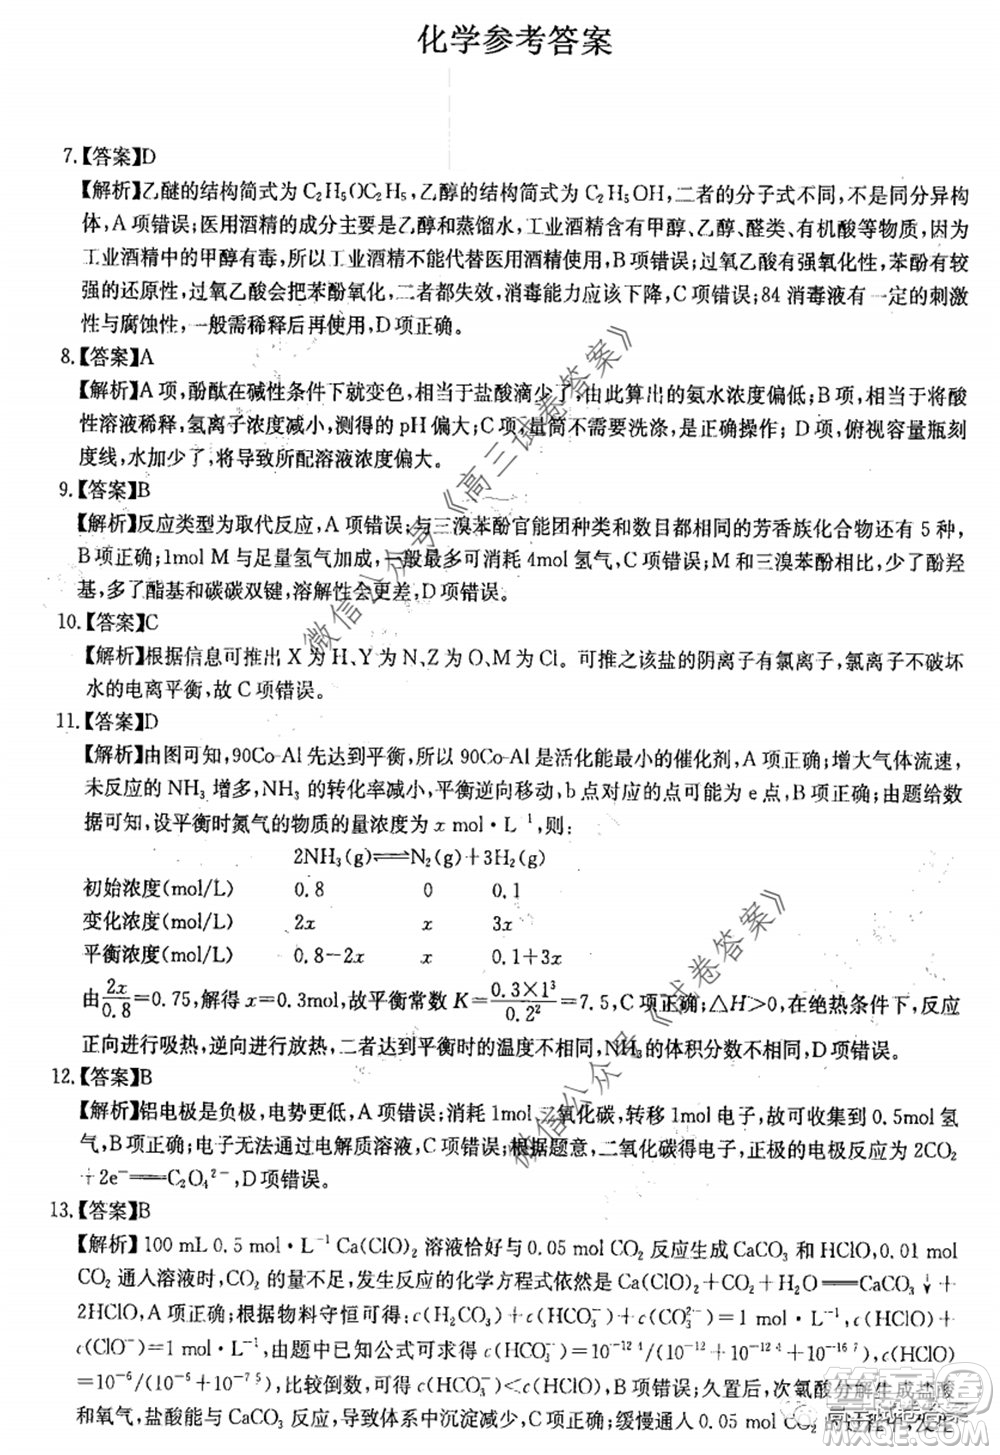 化学参考答案
7.【答案】D
【解析】乙醚的结构简式为 C₂H₅OC₂H₅,乙醇的结构简式为 C₂H₅OH,二者的分子式不同,不是同分异构
体,A 项错误;医用酒精的成分主要是乙醇和蒸馏水,工业酒精含有甲醇、乙醇、醛类、有机酸等物质,因为
工业酒精中的甲醇有毒,所以工业酒精不能代替医用酒精使用,B项错误;过氧乙酸有强氧化性,苯酚有较
强的还原性,过氧乙酸会把苯酚氧化,二者都失效,消毒能力应该下降,C 项错误;84 消毒液有一定的刺激
性与腐蚀性,一般需稀释后再使用,D 项正确。
8.【答案】A
【解析】A 项,酚酞在碱性条件下就变色,相当于盐酸滴少了,由此算出的氨水浓度偏低;B 项,相当于将酸
性溶液稀释,氢离子浓度减小,测得的 pH 偏大;C 项,量筒不需要洗涤,是正确操作;D 项,俯视容量瓶刻
度线,水加少了,将导致所配溶液浓度偏大。
9.【答案】B
【解析】反应类型为取代反应,A 项错误;与三溴苯酚官能团种类和数目都相同的芳香族化合物还有 5 种,
B项正确;1mol M 与足量氢气加成,一般最多可消耗 4mol 氢气,C 项错误;M 和三溴苯酚相比,少了酚羟
基,多了酯基和碳碳双键,溶解性会更差,D 项错误。
10.【答案】C
【解析】根据信息可推出 X 为 H、Y 为 N、Z 为 O、M 为 Cl。可推之该盐的阴离子有氯离子,氯离子不破坏
水的电离平衡,故 C 项错误。
11.【答案】D
【解析】由图可知,90Co-Al 先达到平衡,所以 90Co-Al 是活化能最小的催化剂,A 项正确;增大气体流速,
未反应的 NH₃ 增多,NH₃ 的转化率减小,平衡逆向移动,b 点对应的点可能为 e 点,B 项正确;由题给数
据可知,设平衡时氮气的物质的量浓度为 x mol·L⁻¹,则:
2NH₃(g)⇌N₂(g)+3H₂(g)
初始浓度(mol/L) 0.8 0 0.1
变化浓度(mol/L) 2x x 3x
平衡浓度(mol/L) 0.8-2x x 0.1+3x
由2x/0.8=0.75,解得 x=0.3mol,故平衡常数 K=0.3×1³/0.2²=7.5,C 项正确;△H>0,在绝热条件下,反应
正向进行吸热,逆向进行放热,二者达到平衡时的温度不相同,NH₃ 的体积分数不相同,D 项错误。
12.【答案】B
【解析】铝电极是负极,电势更低,A 项错误;消耗 1mol 二氧化碳,转移 1mol 电子,故可收集到 0.5mol 氢
气,B 项正确;电子无法通过电解质溶液,C 项错误;根据题意,二氧化碳得电子,正极的电极反应为 2CO₂
+2e⁻═C₂O₄²⁻,D 项错误。
13.【答案】B
【解析】100 mL 0.5 mol·L⁻¹ Ca(ClO)₂ 溶液恰好与 0.05 mol CO₂ 反应生成 CaCO₃ 和 HClO,0.01 mol
CO₂ 通入溶液时,CO₂ 的量不足,发生反应的化学方程式依然是 Ca(ClO)₂+CO₂+H₂O═CaCO₃↓+
2HClO,A 项正确;根据物料守恒可得:c(H₂CO₃)+c(HCO₃⁻)+c(CO₃²⁻)+c(HClO)+
c(ClO⁻)=1 mol·L⁻¹,由题中已知公式可求得 c(HCO₃⁻)=10⁻¹²/10⁻¹²·⁴
10⁻⁶/(10⁻⁵/10⁻⁷·²),根据比较数值,可得 c(HCO₃⁻)<c(HClO),B 项错误;久置后,次氯酸分解生成盐酸
和氧气,盐酸能与 CaCO₃ 反应,导致体系中沉淀减少,C 项正确;缓慢通入 0.05 mol CO₂ 的过程中,发生
微信公众号《高三试卷答案》
微信公众号《试卷答案》